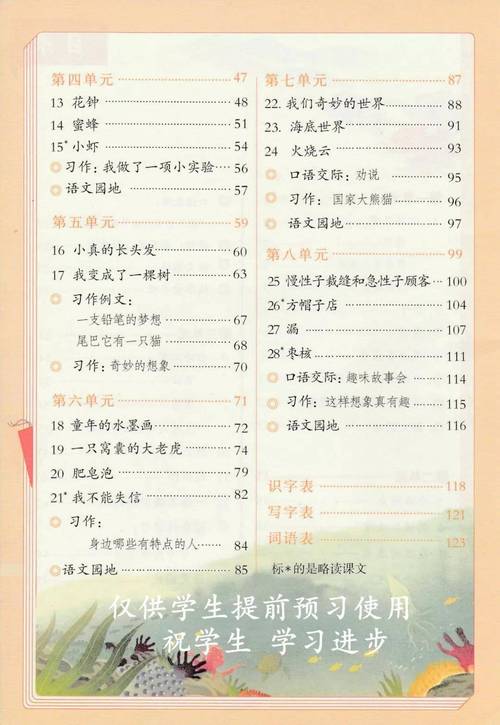 第四单元 47
13 花钟 48
14 蜜蜂 51
15*小虾 54
习作：我做了一项小实验 56
语文园地 57
第五单元 59
16 小真的长头发 60
17 我变成了一棵树 63
习作例文：
一支铅笔的梦想 67
尾巴它有一只猫 68
习作：奇妙的想象 70
第六单元 71
18 童年的水墨画 72
19 一只窝囊的大老虎 74
20 肥皂泡 79
21*我不能失信 82
习作：
身边那些有特点的人 84
语文园地 85
第七单元 87
22. 我们奇妙的世界 88
23. 海底世界 91
24 火烧云 93
口语交际：劝说 95
习作：国家大熊猫 96
语文园地 97
第八单元 99
25 慢性子裁缝和急性子顾客 100
26*方帽子店 104
27 漏 107
28*枣核 111
口语交际：趣味故事会 114
习作：这样想象真有趣 115
语文园地 116
识字表 118
写字表 121
词语表 123
标*的是略读课文
仅供学生提前预习使用
祝学生 学习进步